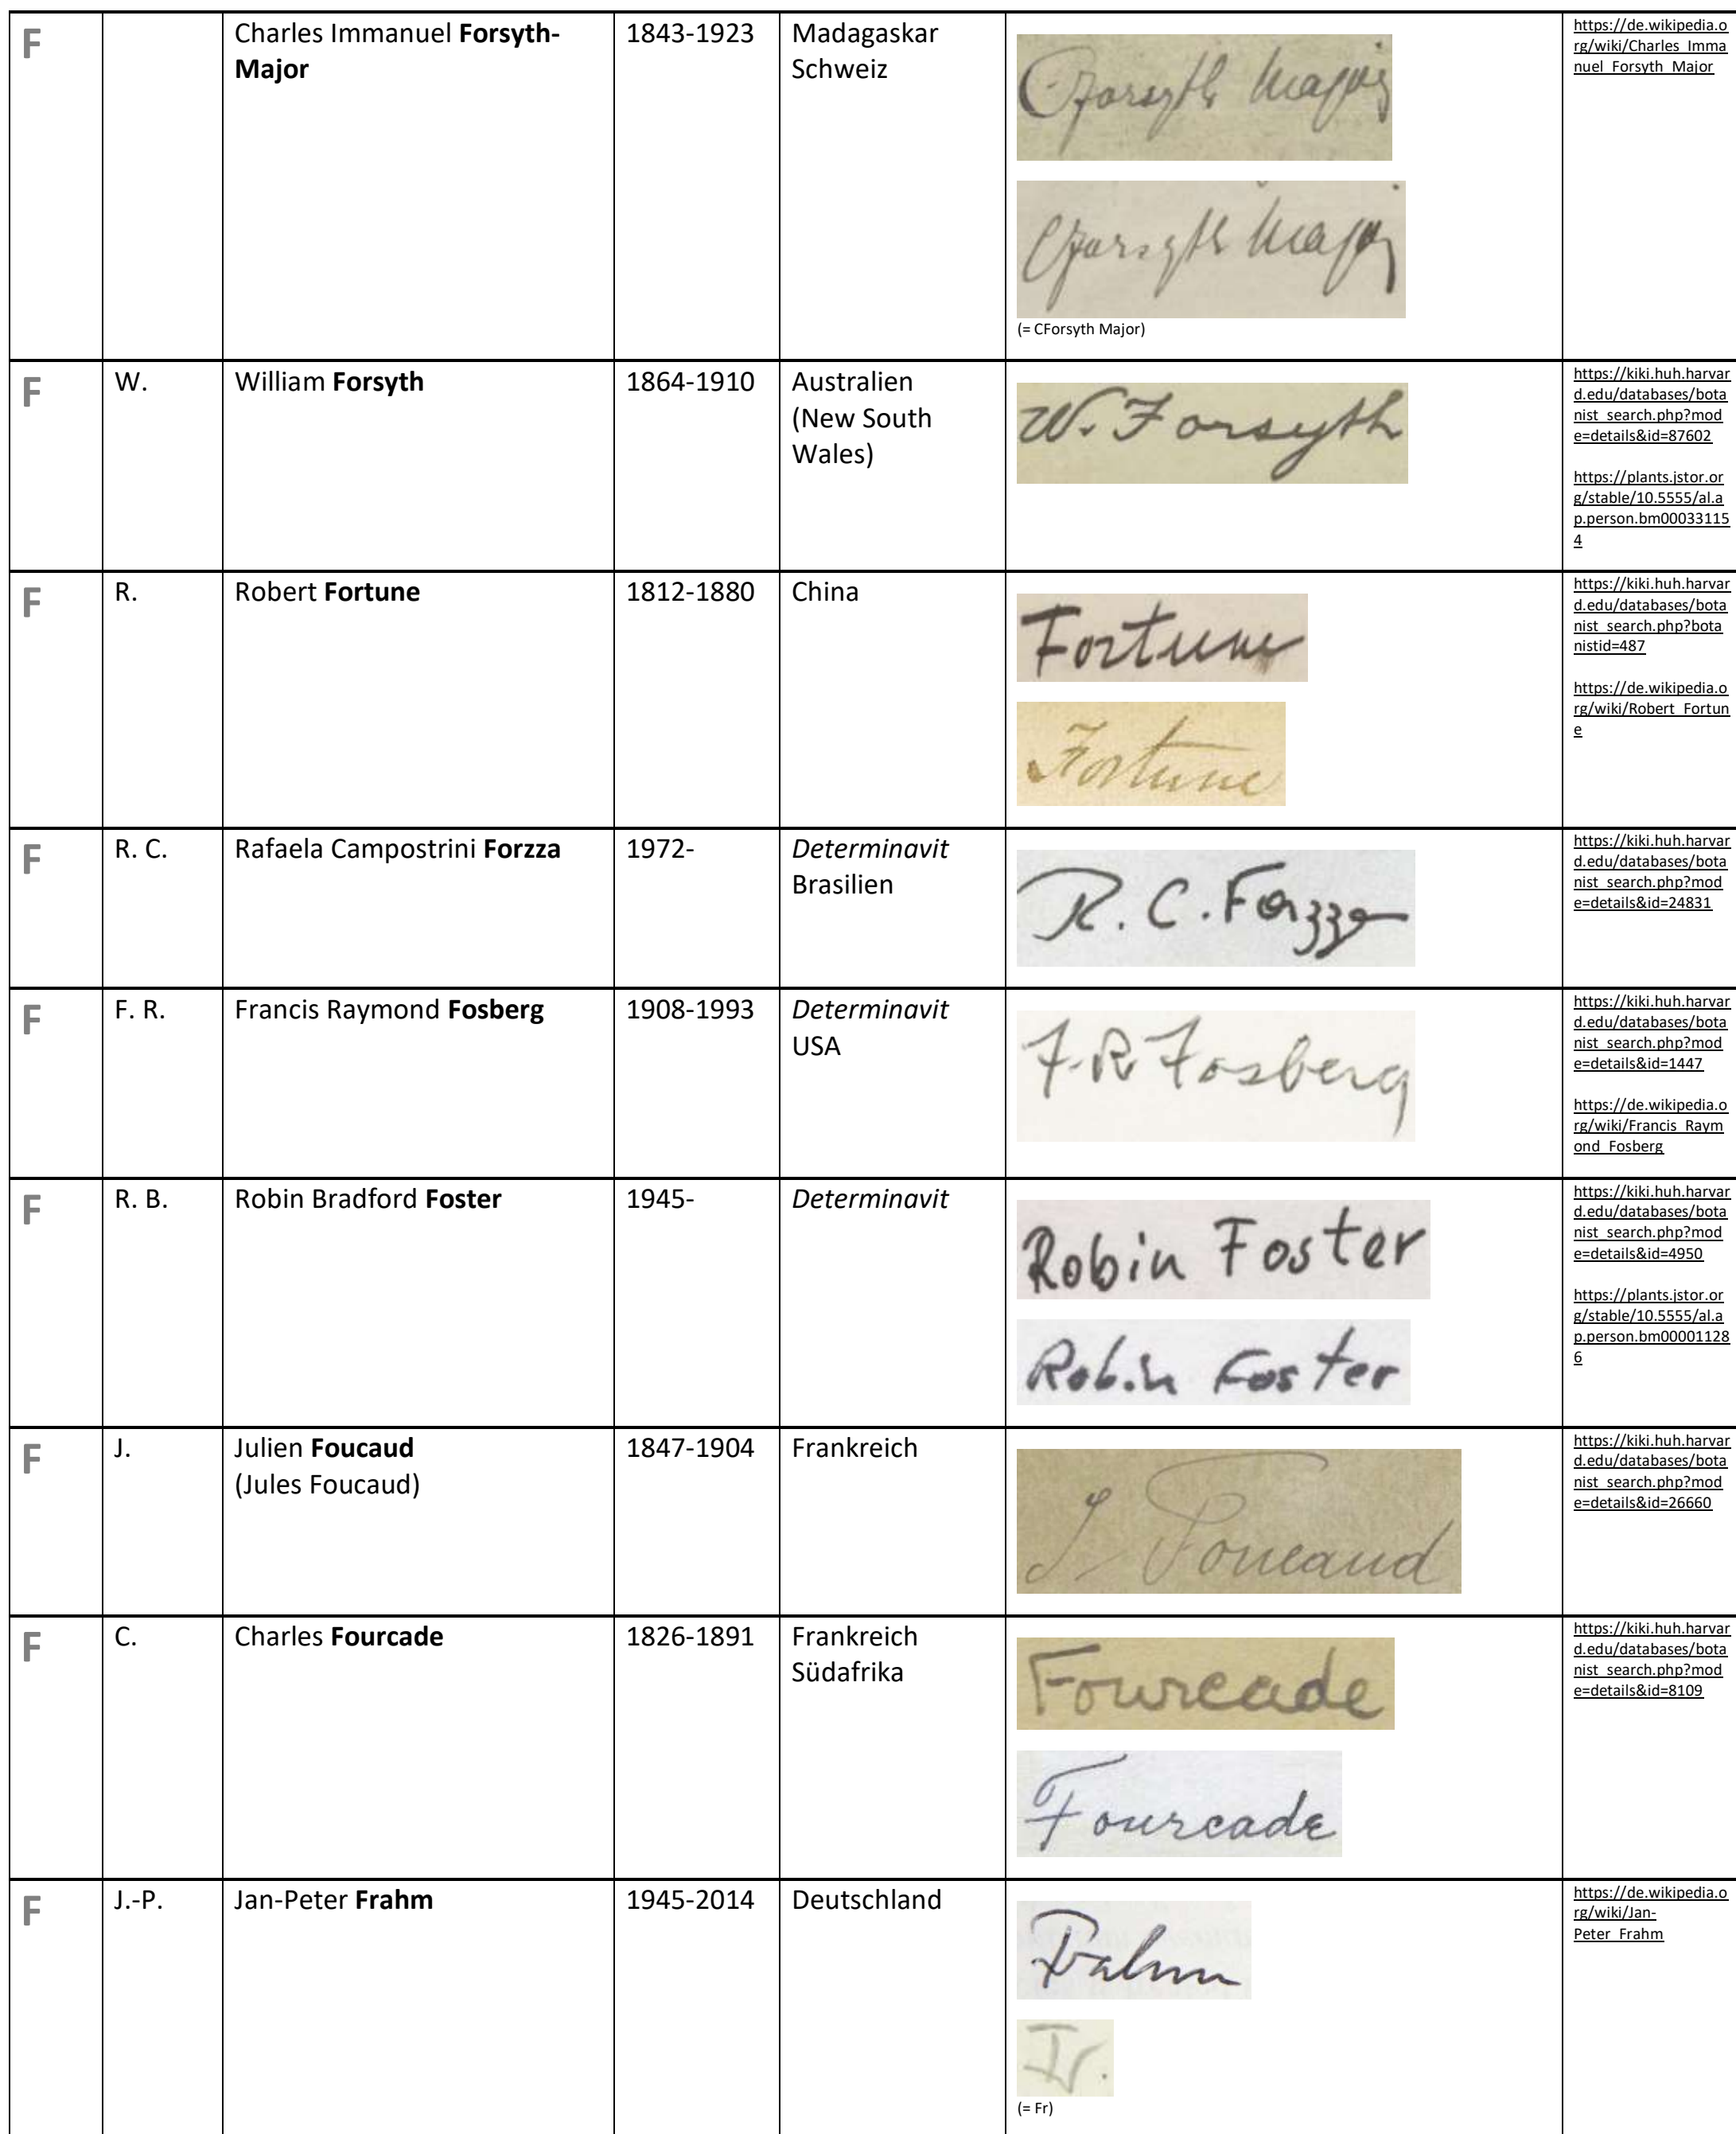 F
Charles Immanuel Forsyth-
Major
1843-1923
Madagaskar
Schweiz
CForsyth Major
CForsyth Major
(= CForsyth Major)
https://de.wikipedia.o
rg/wiki/Charles_Imma
nuel_Forsyth_Major
F
W.
William Forsyth
1864-1910
Australien
(New South
Wales)
W. Forsyth
https://kiki.huh.harvar
d.edu/databases/bota
nist_search.php?mod
e=details&id=87602
https://plants.jstor.or
g/stable/10.5555/al.a
p.person.bm00033115
4
F
R.
Robert Fortune
1812-1880
China
Fortune
Fortune
https://kiki.huh.harvar
d.edu/databases/bota
nist_search.php?bota
nistid=487
https://de.wikipedia.o
rg/wiki/Robert_Fortun
e
F
R. C.
Rafaela Campostrini Forzza
1972-
Determinavit
Brasilien
R. C. Forzza
https://kiki.huh.harvar
d.edu/databases/bota
nist_search.php?mod
e=details&id=24831
F
F. R.
Francis Raymond Fosberg
1908-1993
Determinavit
USA
F. R Fosberg
https://kiki.huh.harvar
d.edu/databases/bota
nist_search.php?mod
e=details&id=1447
https://de.wikipedia.o
rg/wiki/Francis_Raym
ond_Fosberg
F
R. B.
Robin Bradford Foster
1945-
Determinavit
Robin Foster
Robin Foster
https://kiki.huh.harvar
d.edu/databases/bota
nist_search.php?mod
e=details&id=4950
https://plants.jstor.or
g/stable/10.5555/al.a
p.person.bm00001128
6
F
J.
Julien Foucaud
(Jules Foucaud)
1847-1904
Frankreich
J. Foucaud
https://kiki.huh.harvar
d.edu/databases/bota
nist_search.php?mod
e=details&id=26660
F
C.
Charles Fourcade
1826-1891
Frankreich
Südafrika
Fourcade
Fourcade
https://kiki.huh.harvar
d.edu/databases/bota
nist_search.php?mod
e=details&id=8109
F
J.-P.
Jan-Peter Frahm
1945-2014
Deutschland
Frahm
Fr.
(= Fr)
https://de.wikipedia.o
rg/wiki/Jan-
Peter_Frahm